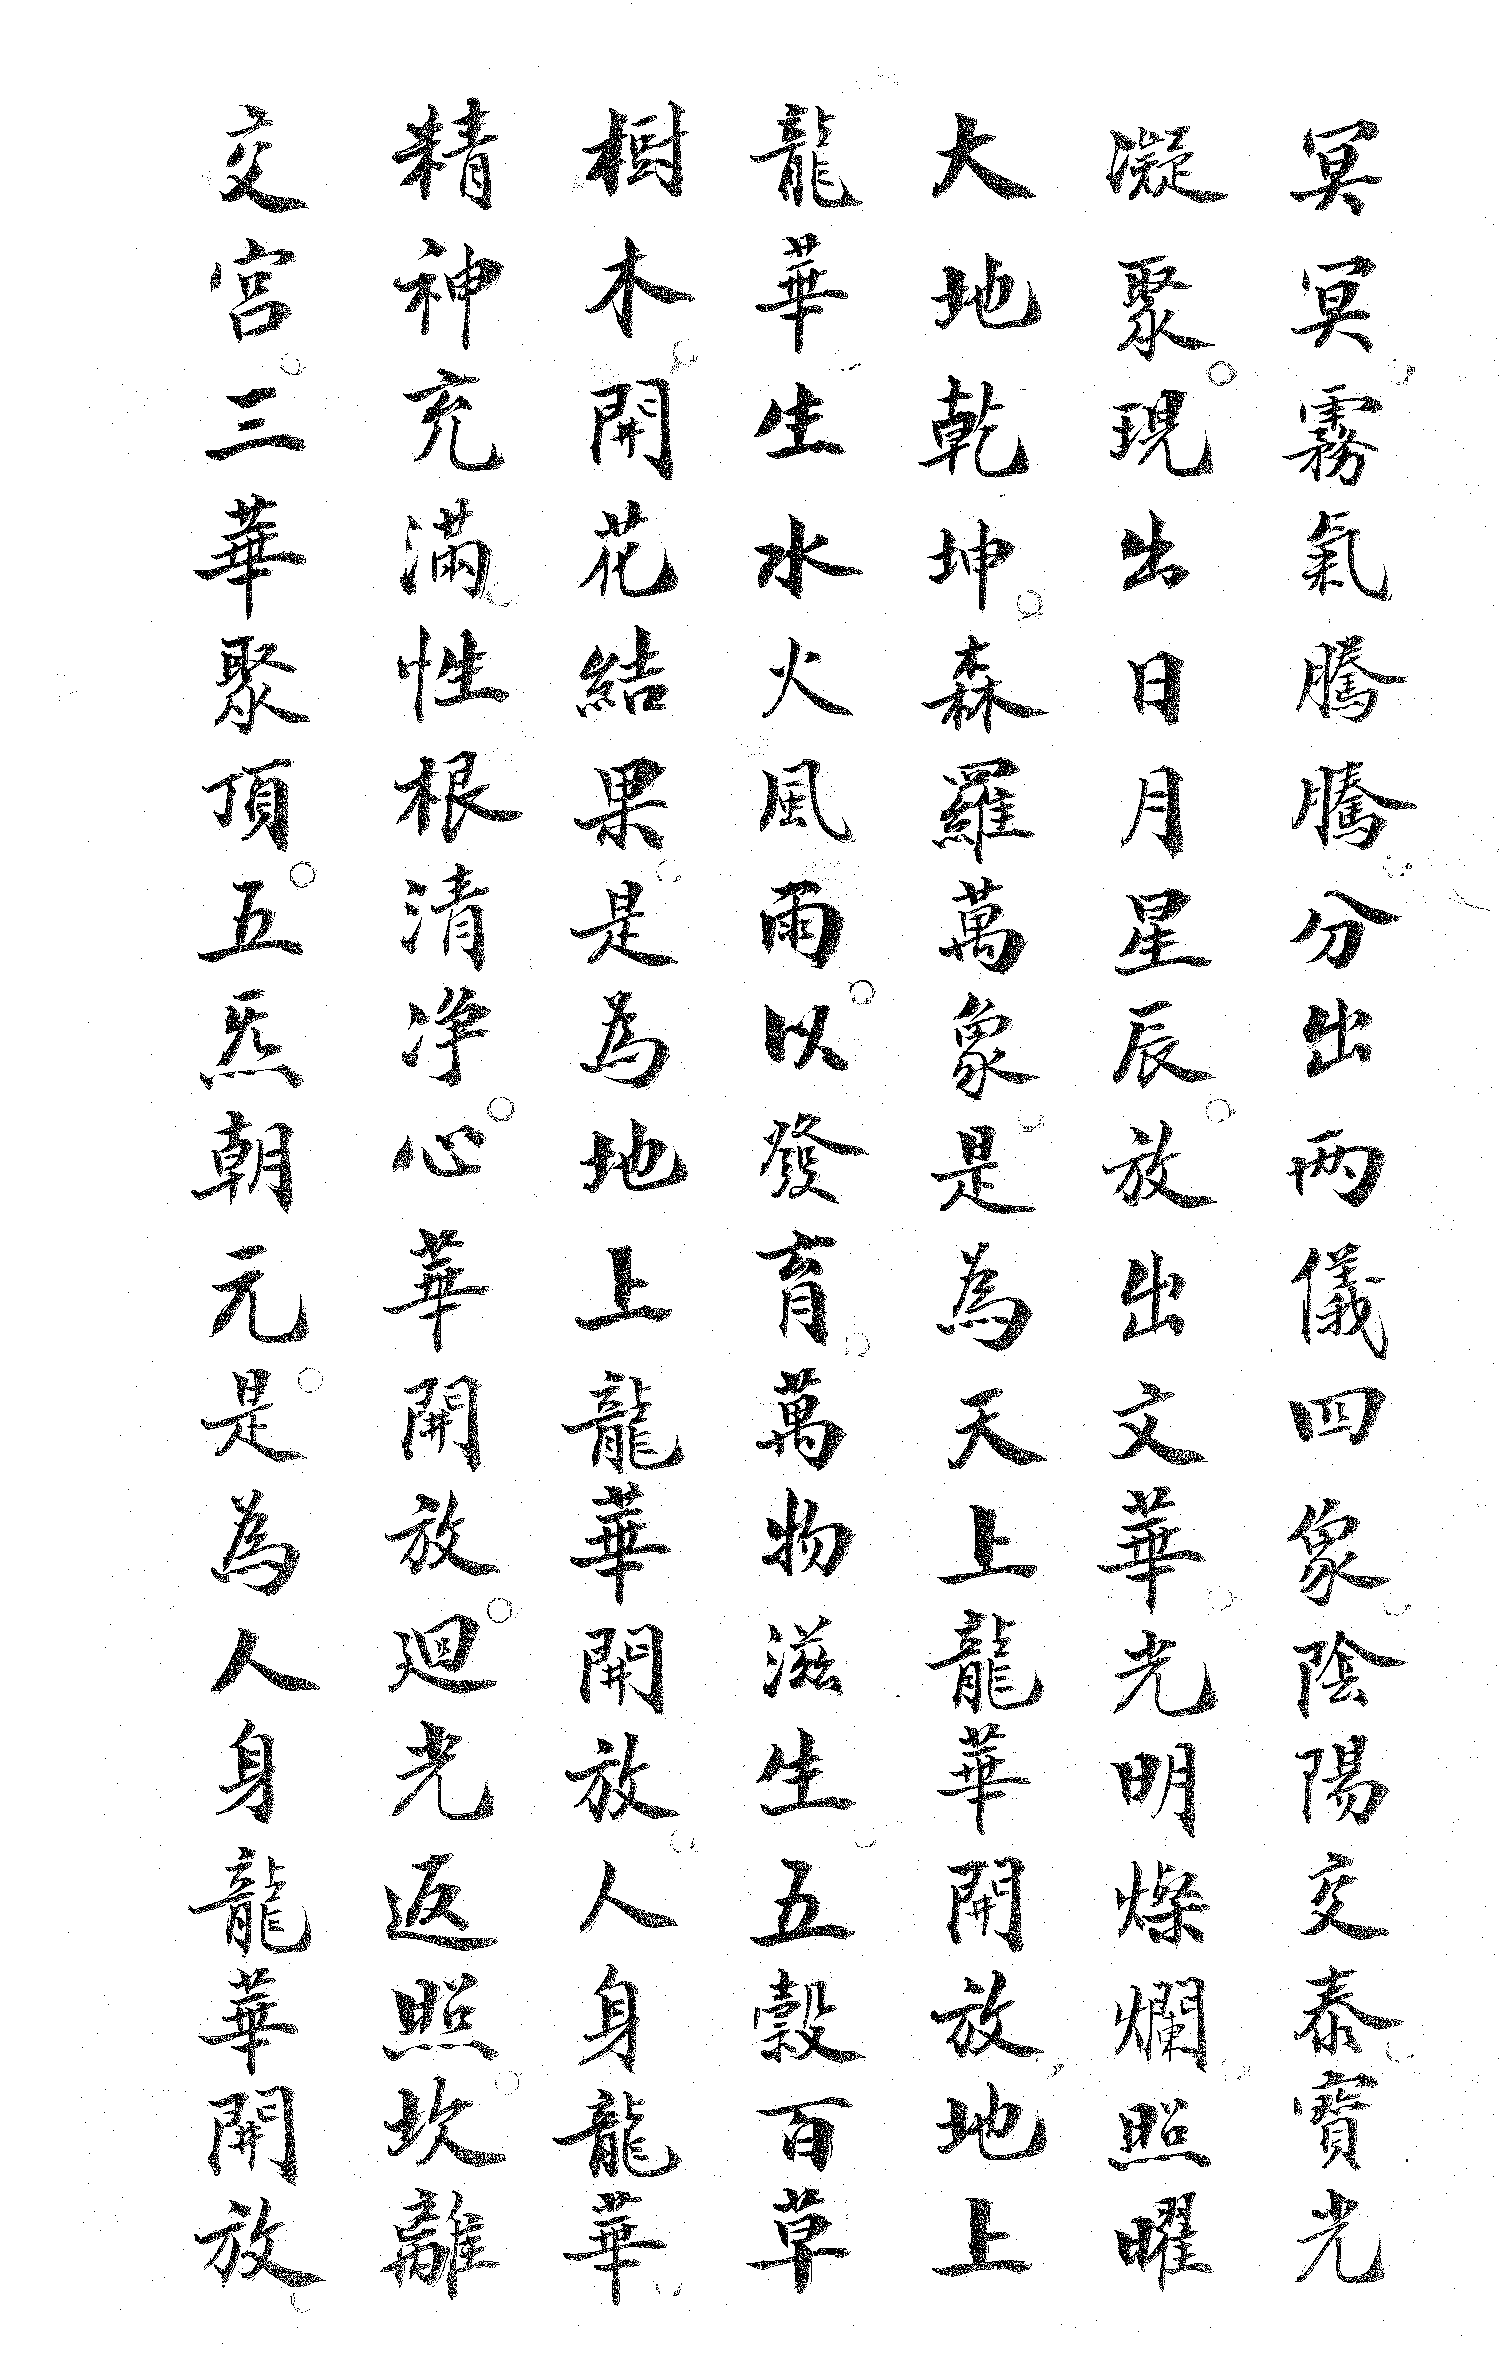 冥冥霧氣騰騰分出两儀四象陰陽交泰寶光
凝聚現出日月星辰放出文華光明燦爛照曜
大地乾坤森羅萬象是為天上龍華開放地上
龍華生水火風雨以發育萬物滋生五穀百草
樹木開花結果是為地上龍華開放人身龍華
精神充滿性根清净心華開放迴光返照坎離
交宮三華聚頂五炁朝元是為人身龍華開放